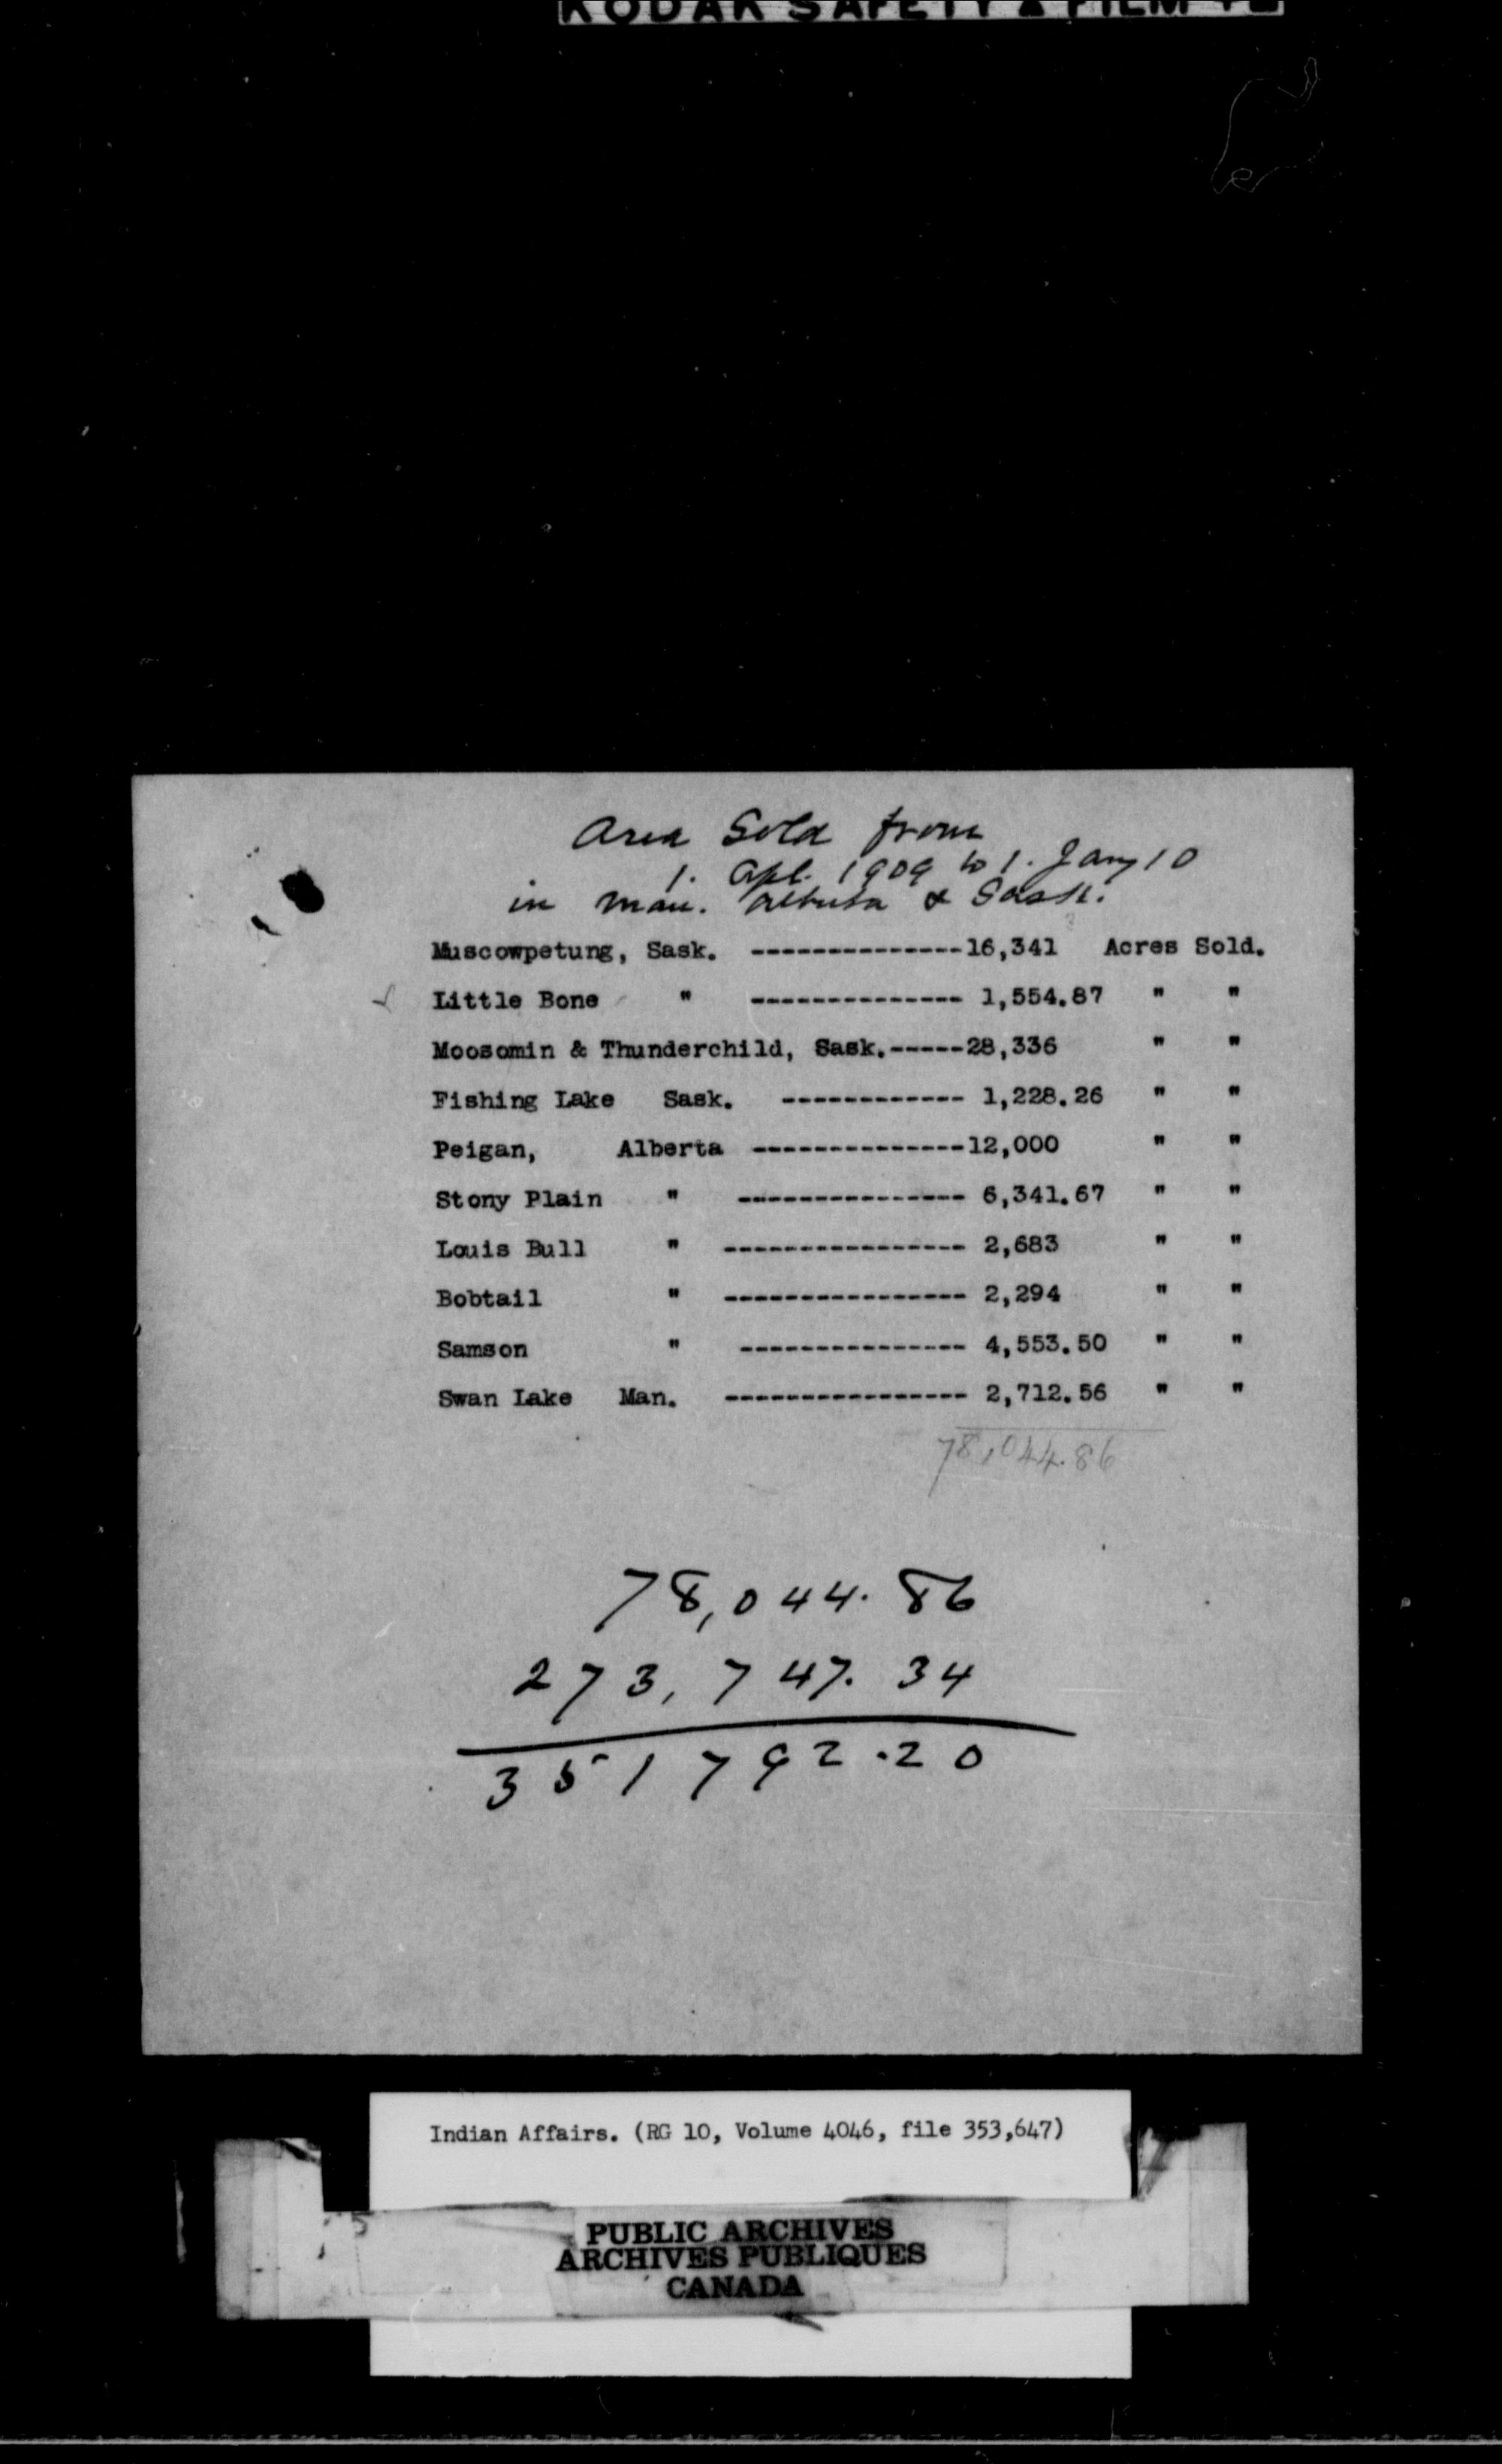 KODAK SAFETY FILM
Area Sold from
1. Apl. 1909 to 1. Jany 10
in Man. Alberta & Sask.
Muscowpetung, Sask. --------------16,341 Acres Sold.
Little Bone " -------------- 1,554.87 " "
Moosomin & Thunderchild, Sask.-----28,336 " "
Fishing Lake Sask. ------------ 1,228.26 " "
Peigan, Alberta --------------12,000 " "
Stony Plain " --------------- 6,341.67 " "
Louis Bull " ---------------- 2,683 " "
Bobtail " ---------------- 2,294 " "
Samson " --------------- 4,553.50 " "
Swan Lake Man. ---------------- 2,712.56 " "
78,044.86
78,044.86
273,747.34
351792.20
Indian Affairs. (RG 10, Volume 4046, file 353,647)
PUBLIC ARCHIVES
ARCHIVES PUBLIQUES
CANADA